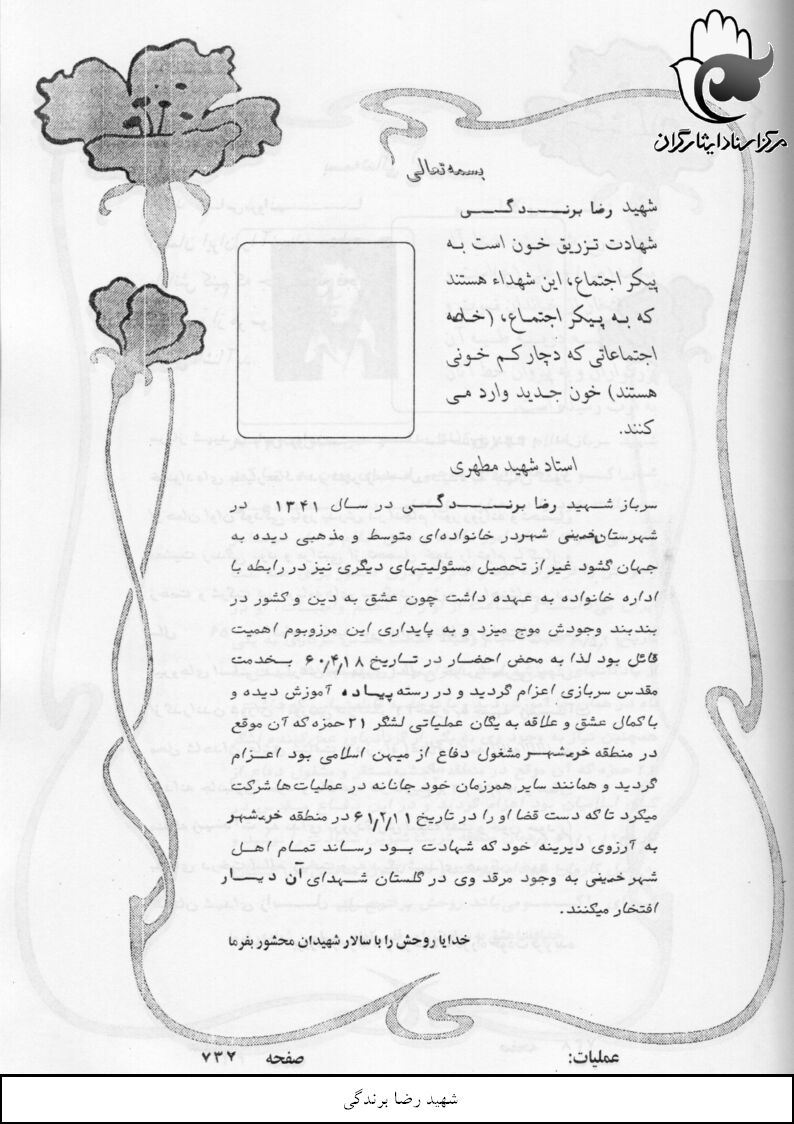 مرکز اسناد ایثارگران
بسمه تعالی
شهید رضا برنــدگــی
شهادت تزریق خون است به
پیکر اجتماع، این شهداء هستند
که به پیکر اجتماع، (خاصه
اجتماعاتی که دچار کم خونی
هستند) خون جدید وارد می
کنند.
استاد شهید مطهری
سرباز شهید رضا برنــدگــی در سال ۱۳۴۱ در
شهرستان خمینی شهر در خانواده‌ای متوسط و مذهبی دیده به
جهان گشود غیر از تحصیل مسئولیتهای دیگری نیز در رابطه با
اداره خانواده به عهده داشت چون عشق به دین و کشور در
بندبند وجودش موج میزد و به پایداری این مرزوبوم اهمیت
قائل بود لذا به محض احضار در تاریخ ۶۰/۴/۱۸ بخدمت
مقدس سربازی اعزام گردید و در رسته پیاده آموزش دیده و
با کمال عشق و علاقه به یگان عملیاتی لشگر ۲۱ حمزه که آن موقع
در منطقه خرمشهر مشغول دفاع از میهن اسلامی بود اعزام
گردید و همانند سایر همرزمان خود جانانه در عملیات ها شرکت
میکرد تا که دست قضا او را در تاریخ ۶۱/۲/۱۱ در منطقه خرمشهر
به آرزوی دیرینه خود که شهادت بود رساند تمام اهل
شهر خمینی به وجود مرقد وی در گلستان شهدای آن دیار
افتخار میکنند.
خدایا روحش را با سالار شهیدان محشور بفرما
عملیات: صفحه ۷۳۲
شهید رضا برندگی